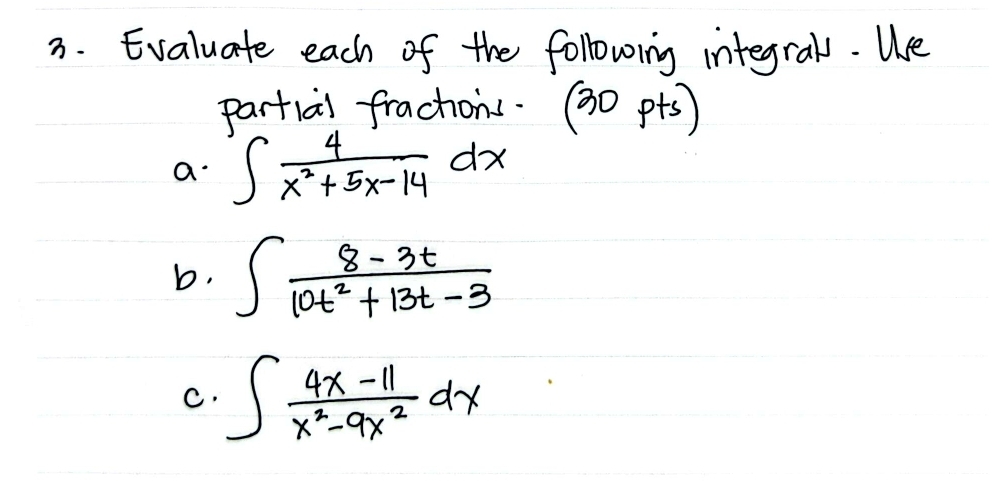 3. Evaluate each of the following integrals. Use
partial fractions. (30 pts)
a. ∫ 4 / (x² + 5x - 14) dx
b. ∫ (8 - 3t) / (10t² + 13t - 3)
c. ∫ (4x - 11) / (x² - 9x²) dx